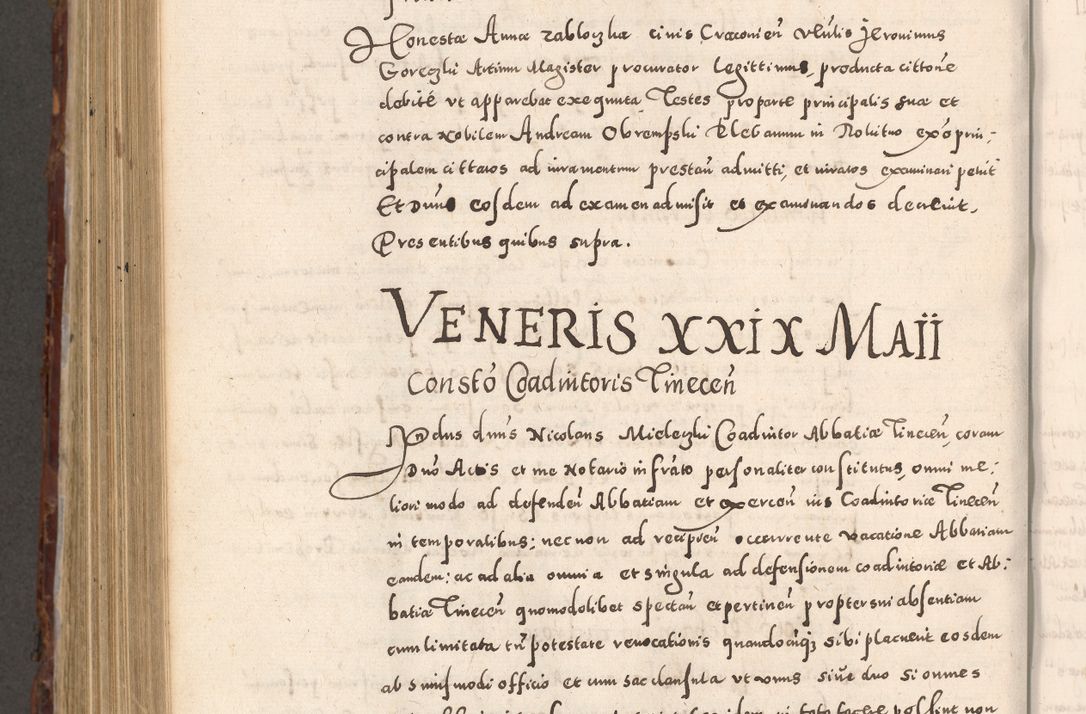 Honestæ Annæ zabloczka civis Cracovien̄ vl̄ulis Jeronimus
Goreczki Artium Magister procurator legittimus, producta citton̄e
debitē vt apparebat exequuta, Testes pro parte principalis suæ et
contra Nobilem Andream Obrempski Plebanum in exo prin-
cipalem cittatos ad iuramentum prestan̄ admitti, et iuratos examinari petiit
Et Dn̄us eosdem ad examen admisit et examinandos decreuit.
Presentibus quibus supra.
VENERIS XXIX MAII
Constō Coadiutoris Tinecen̄
Rn̄dus dn̄us Nicolaus Mieleczki Coadiutor Abbatiæ Tinecen̄, coram
Dn̄o Actis et me Notario infrāto personaliter constitutus, omni me-
liori modo ad defenden̄ Abbatiam et exercen̄ ius Coadiutoriæ Tinecen̄
in temporalibus; necnon ad recipien̄ occurrente vacatione Abbatiam
eandem; ac ad alia omnia et singula ad defensionem coadiutoriæ et Ab-
batiæ Tinecen̄ quomodolibet spectan̄ et pertinen̄ propter sui absentiam
cum limitata tn̄ potestate reuocationis quandocūq; sibi placuerit eosdem
ab huiusmodi officio et cum hac clausula vt vnus siue duo si omnes
in toto facere possint non